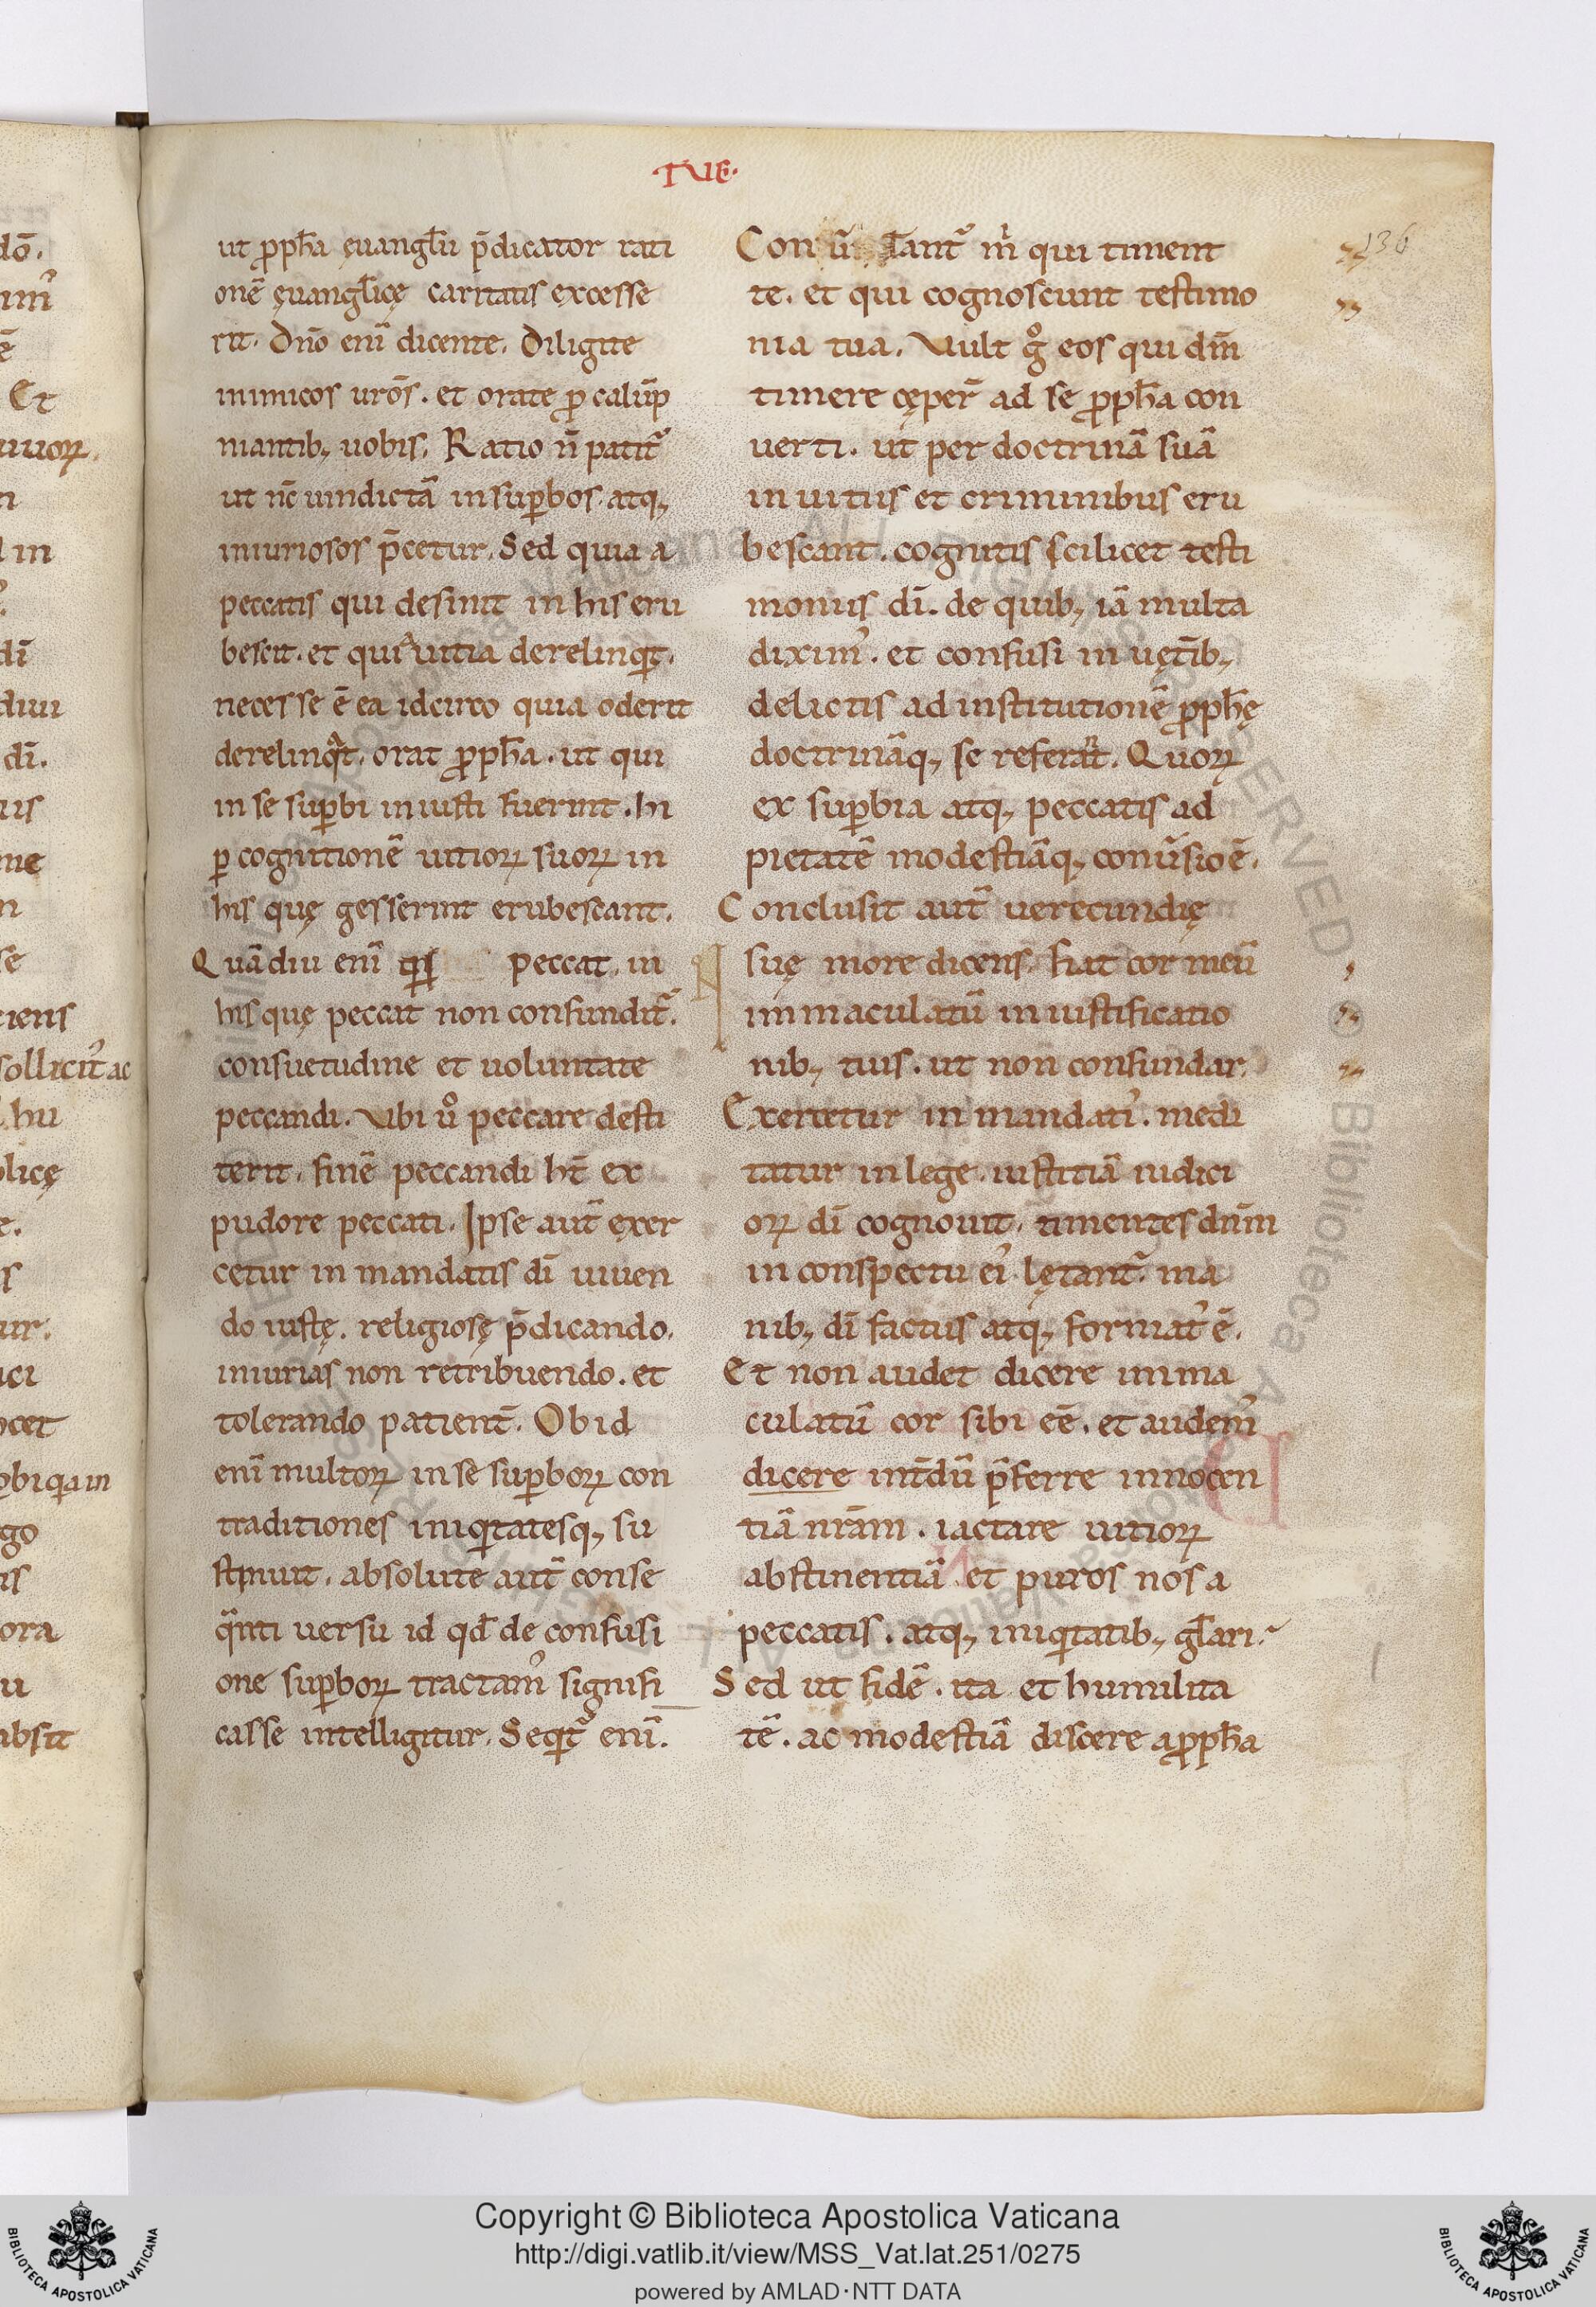 TUE.
136
ut ꝓph̄a ęuangl̄ii p̄dicator rati
onē ęuangl̄icę caritatis excesse
rit. Dn̄o eni̅ dicente. Diligite
inimicos uros̄. et orate ꝓ calūp
niantib; uobis. Ratio n̄ patit᷑
ut nc̄ uindictā in suꝑbos atq;
iniuriosos p̄cetur. Sed quia a
peccatis qui desinit in his eru
bescit. et qui uitia derelinqt.
necesse ē ea idcirco quia oderit
derelinqt. orat ꝓph̄a. ut qui
in se suꝑbi iniusti fuerint. hi
ꝑ cognitionē uitioꝝ suoꝝ in
his quę gesserint erubescant.
Quādiu eni̅ peccat. in
his quę peccat non confundit᷑.
consuetudine et uoluntate
peccandi. Vbi uͦ peccare desti
terit. finē peccandi ht̄ ex
pudore peccati. Ipse aut̄ exer
cetur in mandatis dī uiuen
do iustę. religiosę p̄dicando.
iniurias non retribuendo. et
tolerando patient̄. Ob id
eni̅ multoꝝ in se suꝑboꝝ con
traditiones iniqitatesq; su
stinuit. absolute aut̄ conse
qͣnti uersu id qd̄ de confusi
one suꝑboꝝ tractam᾽ signifi
casse intelligitur. Seqit᷑ eni̅.
Conū tant᷑ m̄ qui timent
te. et qui cognoscunt testimo
nia tua. Vult gͦ eos qui dn̄m
timere cęper̄ ad se ꝓph̄a con
uerti. ut per doctrinā suā
in uitiis et criminibus eru
bescant. cognitis scilicet testi
moniis dī. de quib; iā multa
dixim᾽. et confusi in uęt̄ib;
delictis ad institutionē ꝓph̄ę
doctrināq; se referant. Quoꝝ
ex suꝑbia atq; peccatis ad
pietatē modestiāq; conūsio ē.
Conclusit aut̄ uerecundię
suę more dicens. Fiat cor meū
immaculatū in iustificatio
nib; tuis. ut non confundar.
Exercetur in mandatiſ. medi
tatur in lege. iustitiā iudici
oꝝ dī cognouit. timentes dn̄m
in conspectu ei᾽ lętant᷑. ma
nib; dī factus atq; format᾽ ē.
Et non audet dicere imma
culatū cor sibi eē. et audem᾽
dicere int̄dū p̄ferre innocen
tiā nrām. iactare uitioꝝ
abstinentiā et puros nos a
peccatis. atq; iniqitatib; gl̄ari.
Sed ut fidē. ita et humilita
tē. ac modestiā discere a ꝓph̄a
Copyright © Biblioteca Apostolica Vaticana
http://digi.vatlib.it/view/MSS_Vat.lat.251/0275
powered by AMLAD·NTT DATA